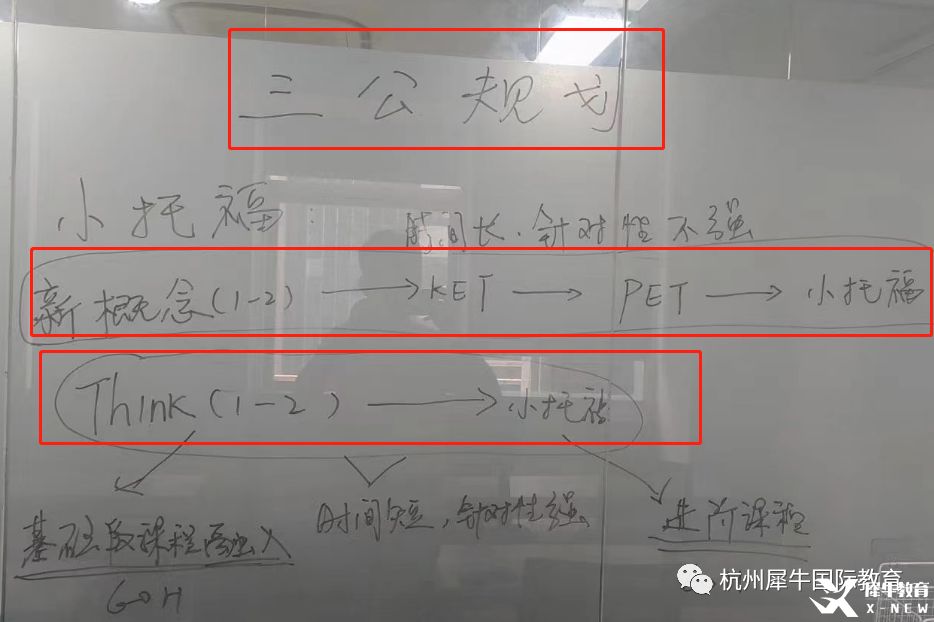 三公规划
小托福
时间长.针对性不强
新概念(1-2) → KET → PET → 小托福
Think(1-2) → 小托福
时间短,针对性强
进阶课程
基础段课程
杭州犀牛国际教育
犀牛教育
X-NEW